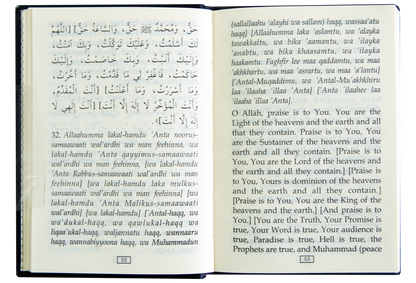 حَقٌّ، وَمُحَمَّدٌ ﷺ حَقٌّ، وَالسَّاعَةُ حَقٌّ] [اللَّهُمَّ
لَكَ أَسْلَمْتُ، وَعَلَيْكَ تَوَكَّلْتُ، وَبِكَ آمَنْتُ،
وَإِلَيْكَ أَنَبْتُ، وَبِكَ خَاصَمْتُ، وَإِلَيْكَ
حَاكَمْتُ. فَاغْفِرْ لِي مَا قَدَّمْتُ، وَمَا أَخَّرْتُ،
وَمَا أَسْرَرْتُ، وَمَا أَعْلَنْتُ] [أَنْتَ الْمُقَدِّمُ،
وَأَنْتَ الْمُؤَخِّرُ لَا إِلَهَ إِلَّا أَنْتَ] [أَنْتَ إِلَهِي لَا
إِلَهَ إِلَّا أَنْتَ]».
32. Allaahumma lakal-hamdu 'Anta noorus-
samaawaati wal'ardhi wa man feehinna, wa
lakal-hamdu 'Anta qayyimus-samaawaati
wal'ardhi wa man feehinna, [wa lakal-hamdu
'Anta Rabbus-samaawaati wal'ardhi wa man
feehinna] [wa lakal-hamdu laka mulkus-
samaawaati wal'ardhi wa man feehinna] [wa
lakal-hamdu 'Anta Malikus-samaawaati
wal'ardhi] [wa lakal-hamdu] ['Antal-haqq, wa
wa'dukal-haqq, wa qawlukal-haqq, wa
liqaa'ukal-haqq, waljannatu haqq, wannaaru
haqq, wannabiyyoona haqq, wa Muhammadun
52
(sallallaahu 'alayhi wa sallam) haqq, wassaa'atu
haqq] [Allaahumma laka 'aslamtu, wa 'alayka
tawakkaltu, wa bika 'aamantu, wa 'ilayka
'anabtu, wa bika khaasamtu, wa 'ilayka
haakamtu. Faghfir lee maa qaddamtu, wa maa
'akhkhartu, wa maa 'asrartu, wa maa 'a'lantu]
['Antal-Muqaddimu, wa 'Antal-Mu'akhkhiru
laa 'ilaaha 'illaa 'Anta] ['Anta 'ilaahee laa
'ilaaha 'illaa 'Anta].
O Allah, praise is to You. You are the
Light of the heavens and the earth and all
that they contain. Praise is to You, You
are the Sustainer of the heavens and the
earth and all they contain. [Praise is to
You, You are the Lord of the heavens and
the earth and all they contain.] [Praise
is to You, Yours is dominion of the heavens
and the earth and all they contain.]
[Praise is to You, You are the King of the
heavens and the earth.] [And praise is to
You.] [You are the Truth, Your Promise is
true, Your Word is true, Your audience is
true, Paradise is true, Hell is true, the
Prophets are true, and Muhammad (peace
53